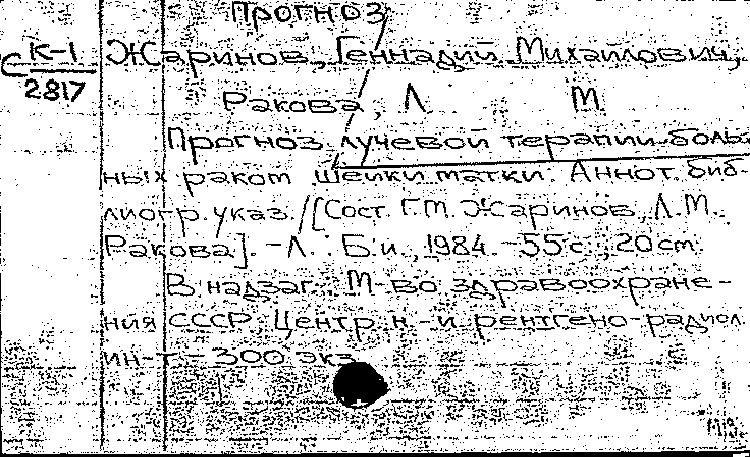 Прогноз
С К-1 Жаринов, Геннадий Михайлович,
2817
Ракова, Л. М.
Прогноз лучевой терапии боль-
ных раком шейки матки: Аннот. биб-
лиогр. указ. / [Сост. Г.М. Жаринов, Л.М.
Ракова]. - Л. : Б.и., 1984. - 55 с. ; 20 см.
В надзаг.: М-во здравоохране-
ния СССР, Центр. н.-и. рентгено-радиол.
ин-т. - 300 экз.